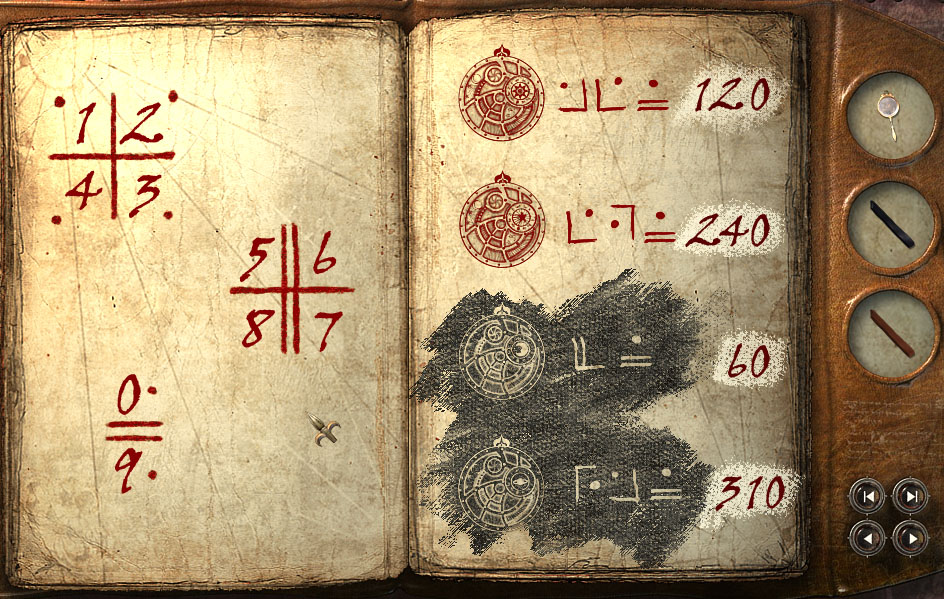 1 2
4 3
5 6
8 7
0
9
120
240
60
310